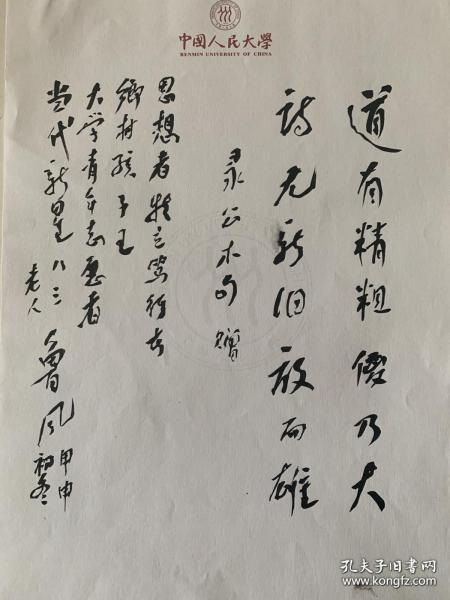 中國人民大學
RENMIN UNIVERSITY OF CHINA
道有精粗優乃大
诗尤新旧放而雄
录公木句赠
思想者特立笃行者
乡村孩子王
大学青年志愿者
当代新星八三
老人
鲁风
甲申
初冬
孔夫子旧书网
www.kongfz.com